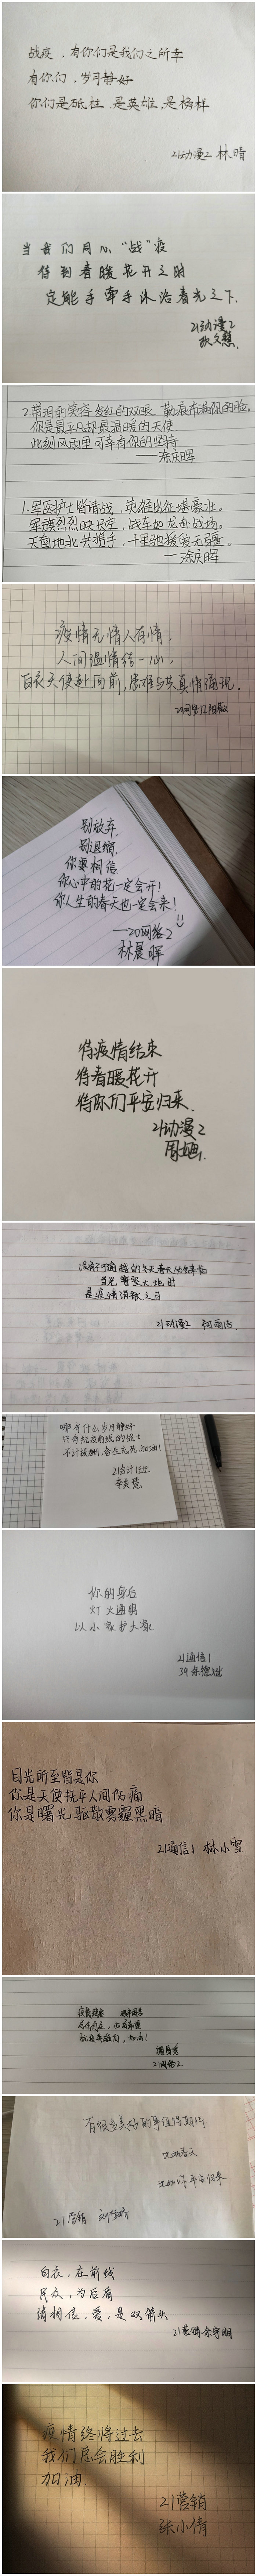 战疫，有你们是我们之所幸
有你们，岁月静好
你们是砥柱，是英雄，是榜样
21动漫2 林晴
当我们同心“战”疫
待到春暖花开之时
定能手牵手沐浴春光之下.
21动漫2
2.带泪的笑容 发红的双眼 勒痕布满你的脸。
你是最平凡却最温暖的天使
此刻风雨里 可幸有你的坚持
——涂庆晖
1.军医护士皆请战，英雄出征堪豪壮。
军旗烈烈映长空，战车如龙赴战场。
天南地北共携手，千里驰援爱无疆。
—涂庆晖
疫情无情人有情，
人间温情结一心，
白衣天使赴向前，患难与共真情涌现.
别放弃.
别退缩.
你要相信
你心中的花一定会开！
你人生的春天也一定会来！
——20网络2
林晨晖
待疫情结束
待春暖花开
待你们平安归来.
21动漫2
没有不可逾越的冬天春天终会来临
当光 大地时
是疫情消散之日
21动漫2 何雨洁
哪有什么岁月静好
只有抗疫前线的战士
不计报酬，舍生忘死，加油！
21会计1班
你的身后
灯火通明
以小家护大家
21通信1
目光所至皆是你
你是天使抚平人间伤痛
你是曙光 驱散雾霾黑暗
21通信1 林小雪
抗疫英雄们，加油！
21网络2
有很多美好的事值得期待
比如春天
比如你平安归来
21营销
白衣，在前线
民众，为后盾
请相信，爱，是双箭头
21营销
疫情终将过去
我们总会胜利
加油
21营销
张小倩